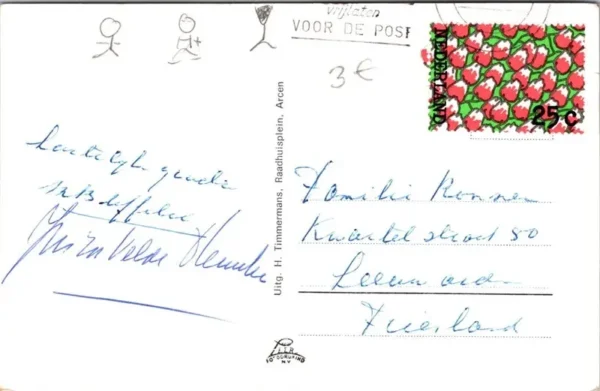 vrijlaten
VOOR DE POST
NEDERLAND
25 c
3 €
hartelijk groeten
Uitg. H. Timmermans, Raadhuisplein, Arcen
Familie
Kwartelstraat 50
Leeuwarden
Friesland
FOTODRUKIND
N.V.